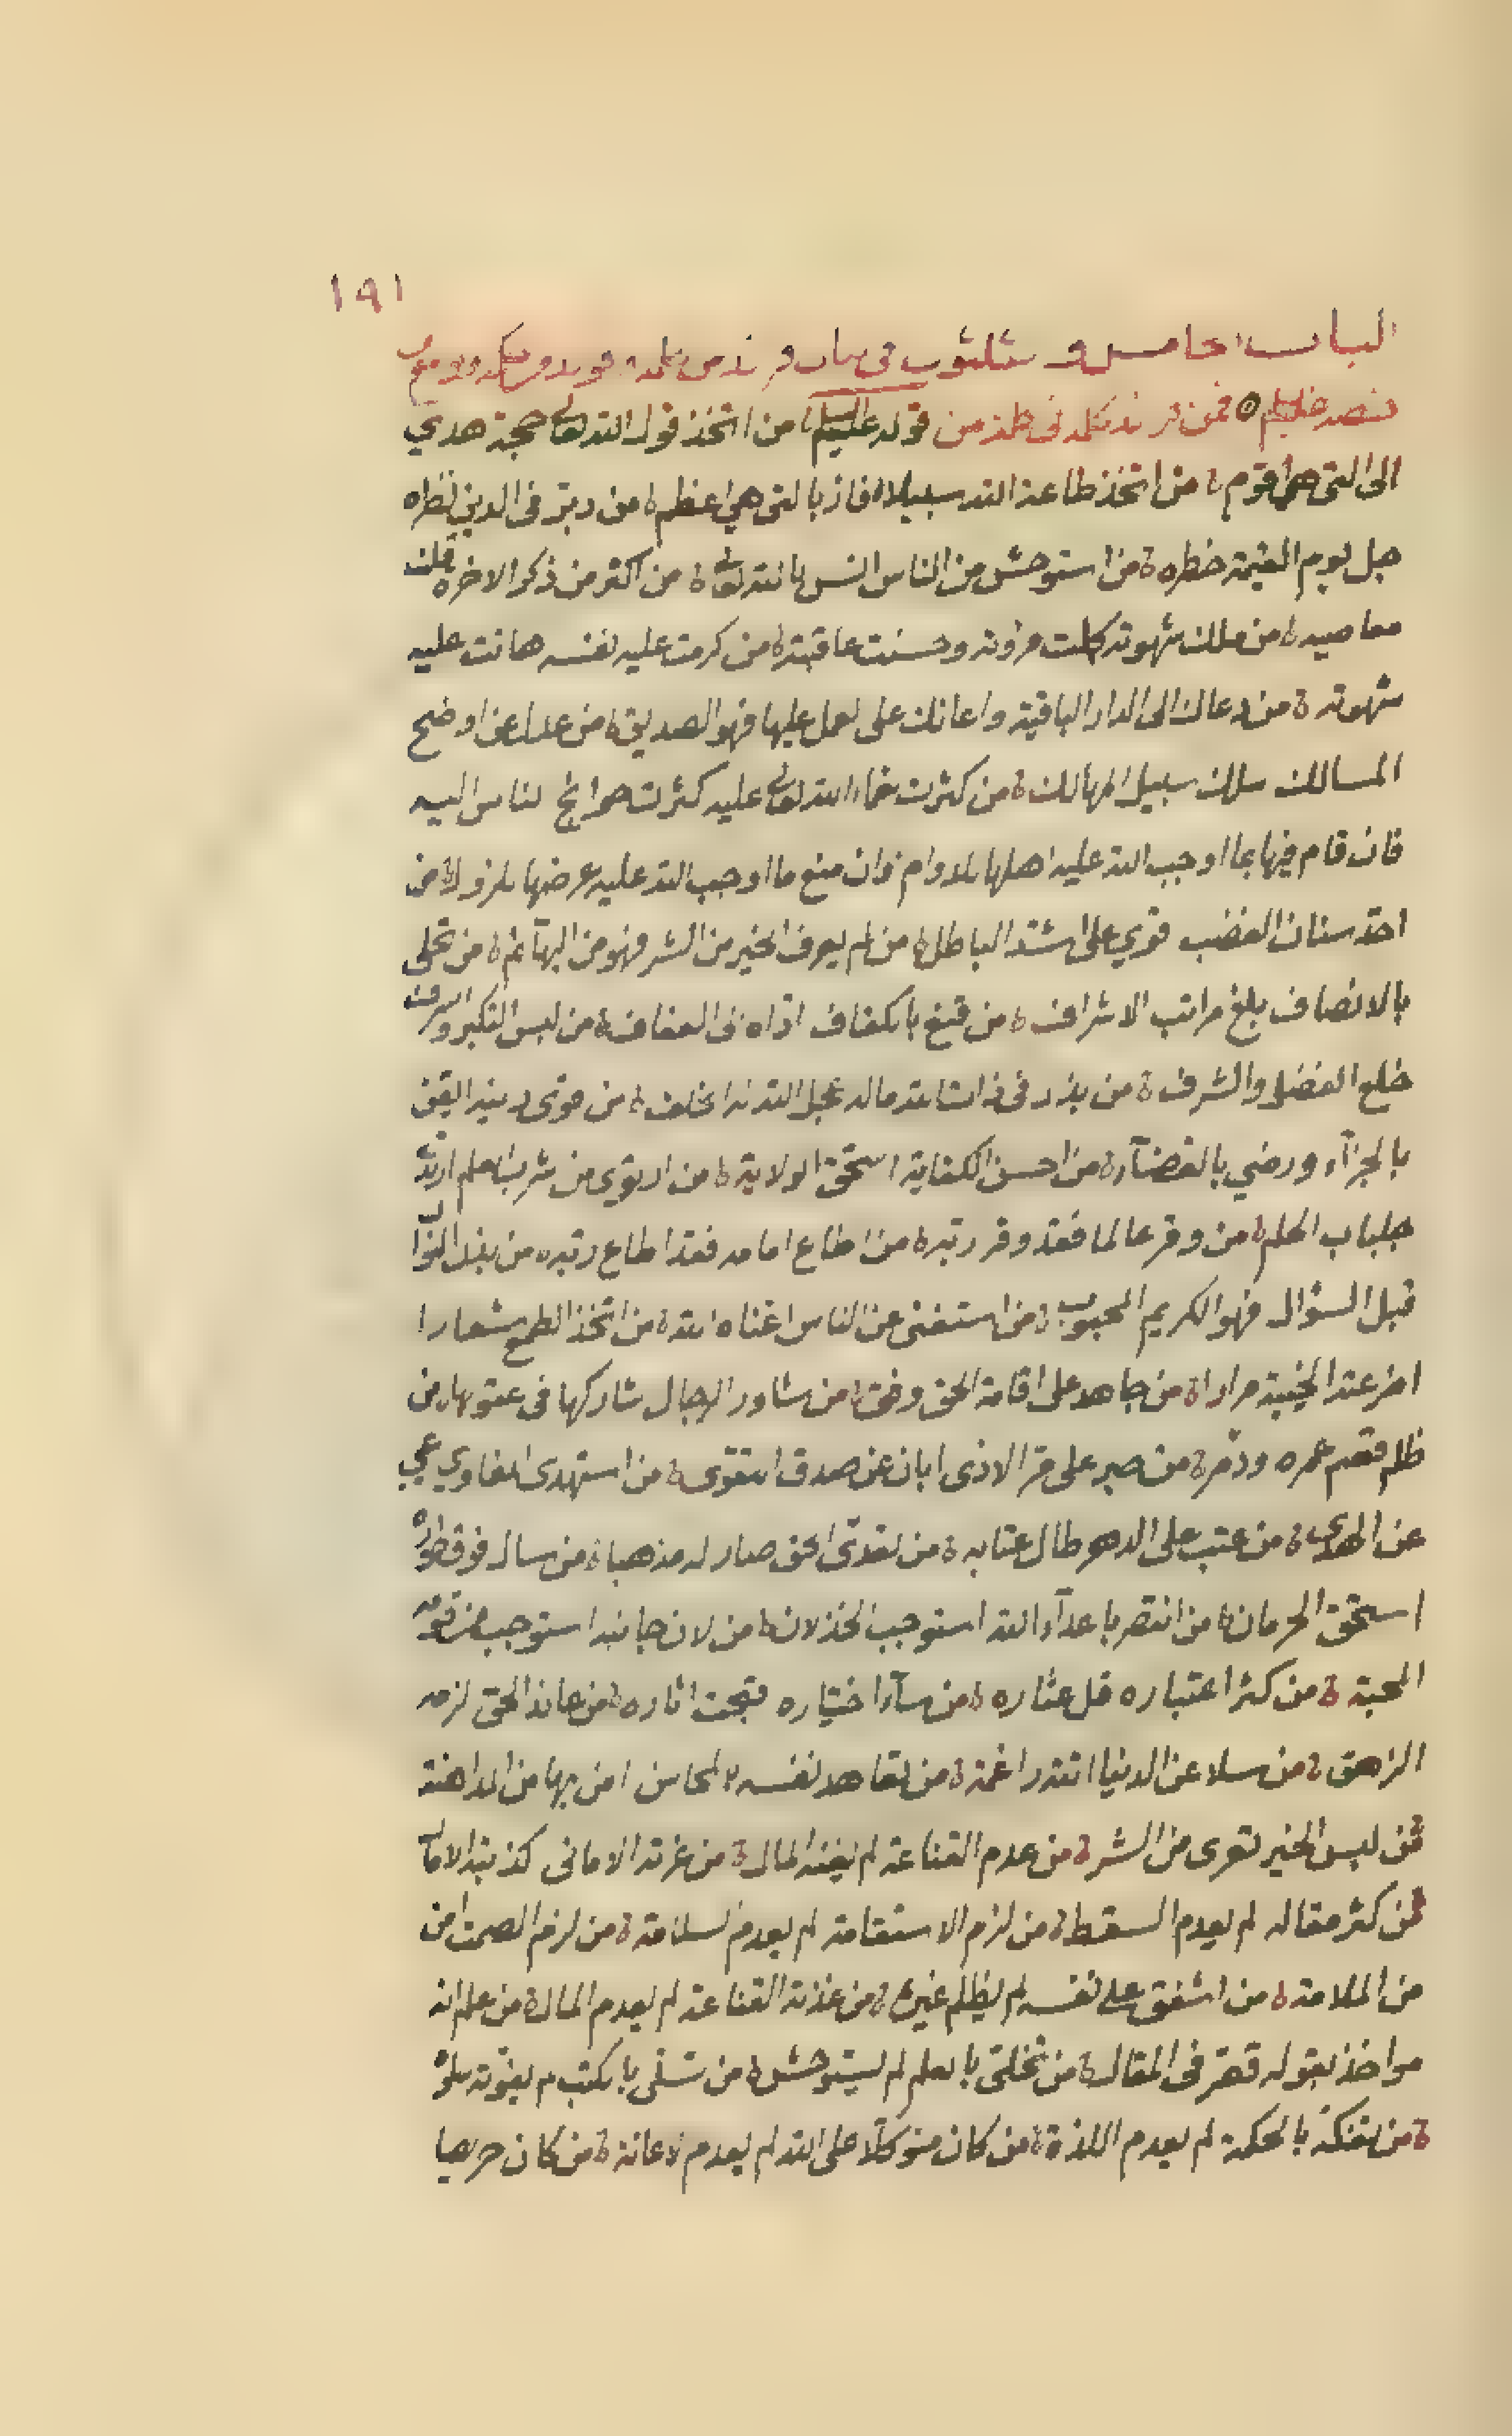 ١٩١
الباب الخامس و ثلثون في
قوله عليه السلم من اتخذ قول الله تعالى حجة هدي
الى التي هي اقوم ة من اتخذ طاعة الله سبيلا فاز بالتي هي اعظم ة من دبّر في الدين نظره
جل يوم القيمة خطره ة من استوحش من الناس انس بالله تعالى ة من اكثر من ذكر الاخره قلت
معاصيه ة من ملك شهوته كملت مروته وحسنت عاقبته ة من كرمت عليه نفسه هانت عليه
شهوته ة من دعاك الى الدار الباقية واعانك على العمل عليها فهو الصديق ة من عدل عن اوضح
المسالك سلك سبيل المهالك ة من كثرت نعماء الله تعالى عليه كثرت حوائج الناس اليه
فان قام فيها بما اوجب الله عليه اهلها للدوام وان منع ما اوجب الله عليه عرضها للزوال ة من
احدّ سنان الغضب قوي على اشد الباطل ة من لم يعرف الخير من الشر فهو من البهآئم ة من تحلى
بالانصاف بلغ مراتب الاشراف ة من قنع بالكفاف ادّاه الى العفاف ة من لبس التكبر والسرف
خلع الفضل والشرف ة من بذل في ذات الله ماله عجل الله له الخلف ة من قوى دينه ايقن
بالجزآء ورضي بالقضآء ة من احسن الكفاية استحق الولاية ة من ارتوى من شرب العلم ارتدى
جلباب الحلم ة من وقر عالما فقد وقر ربه ة من اطاع امامه فقد اطاع ربه ة من بذل النوال
قبل السؤال فهو الكريم المحبوب ة من استغنى عن الناس اغناه الله ة من اتخذ الطمع شعارا
جرعته الخيبة مرارا ة من جاهد على اقامة الحق وفق ة من شاور الرجال شاركها في عقولها ة من
ظلم قصم عمره ودمره ة من صبر على مرّ الاذى ابان عن صدق التقوى ة من استهدى الغاوي عمي
عن الهدى ة من عتب على الدهر طال عتابه ة من تعدّى الحق صار له مذهبا ة من سال فوق قدره
استحق الحرمان ة من انتصر باعدآء الله استوجب الخذلان ة من لان جانبه استوجب من قومه
المحبة ة من كثر اعتباره قل عثاره ة من سآء اختياره قبحت اثاره ة من عاند الحق لزمه
الزهق ة من سلا عن الدنيا اتته راغمة ة من تعاهد نفسه بالمحاسن امن بها من المداهنة
ة من لبس الخير تعرى من الشر ة من عدم القناعة لم يغنه المال ة من غرته الاماني كذبته الامال
ة من كثر مقاله لم يعدم السقط ة من لزم الاستقامة لم يعدم السلامة ة من لزم الصمت امن
من الملامة ة من اشفق على نفسه لم يظلم غيره ة من عدته القناعة لم يعدم المال ة من علم انه
مواخذ بقوله قصّر في المقال ة من تخلّى بالعلم لم يستوحش ة من تسلّى بالكتب لم يفوته سلوة
ة من تفكّه بالحكمة لم يعدم اللذة ة من كان متوكلا على الله لم يعدم الاعانة ة من كان حريصا